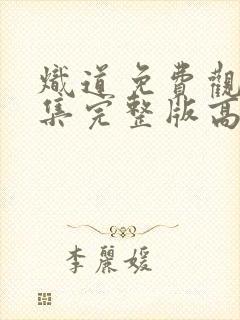 熾道免費觀
集完整版高
李麗媛